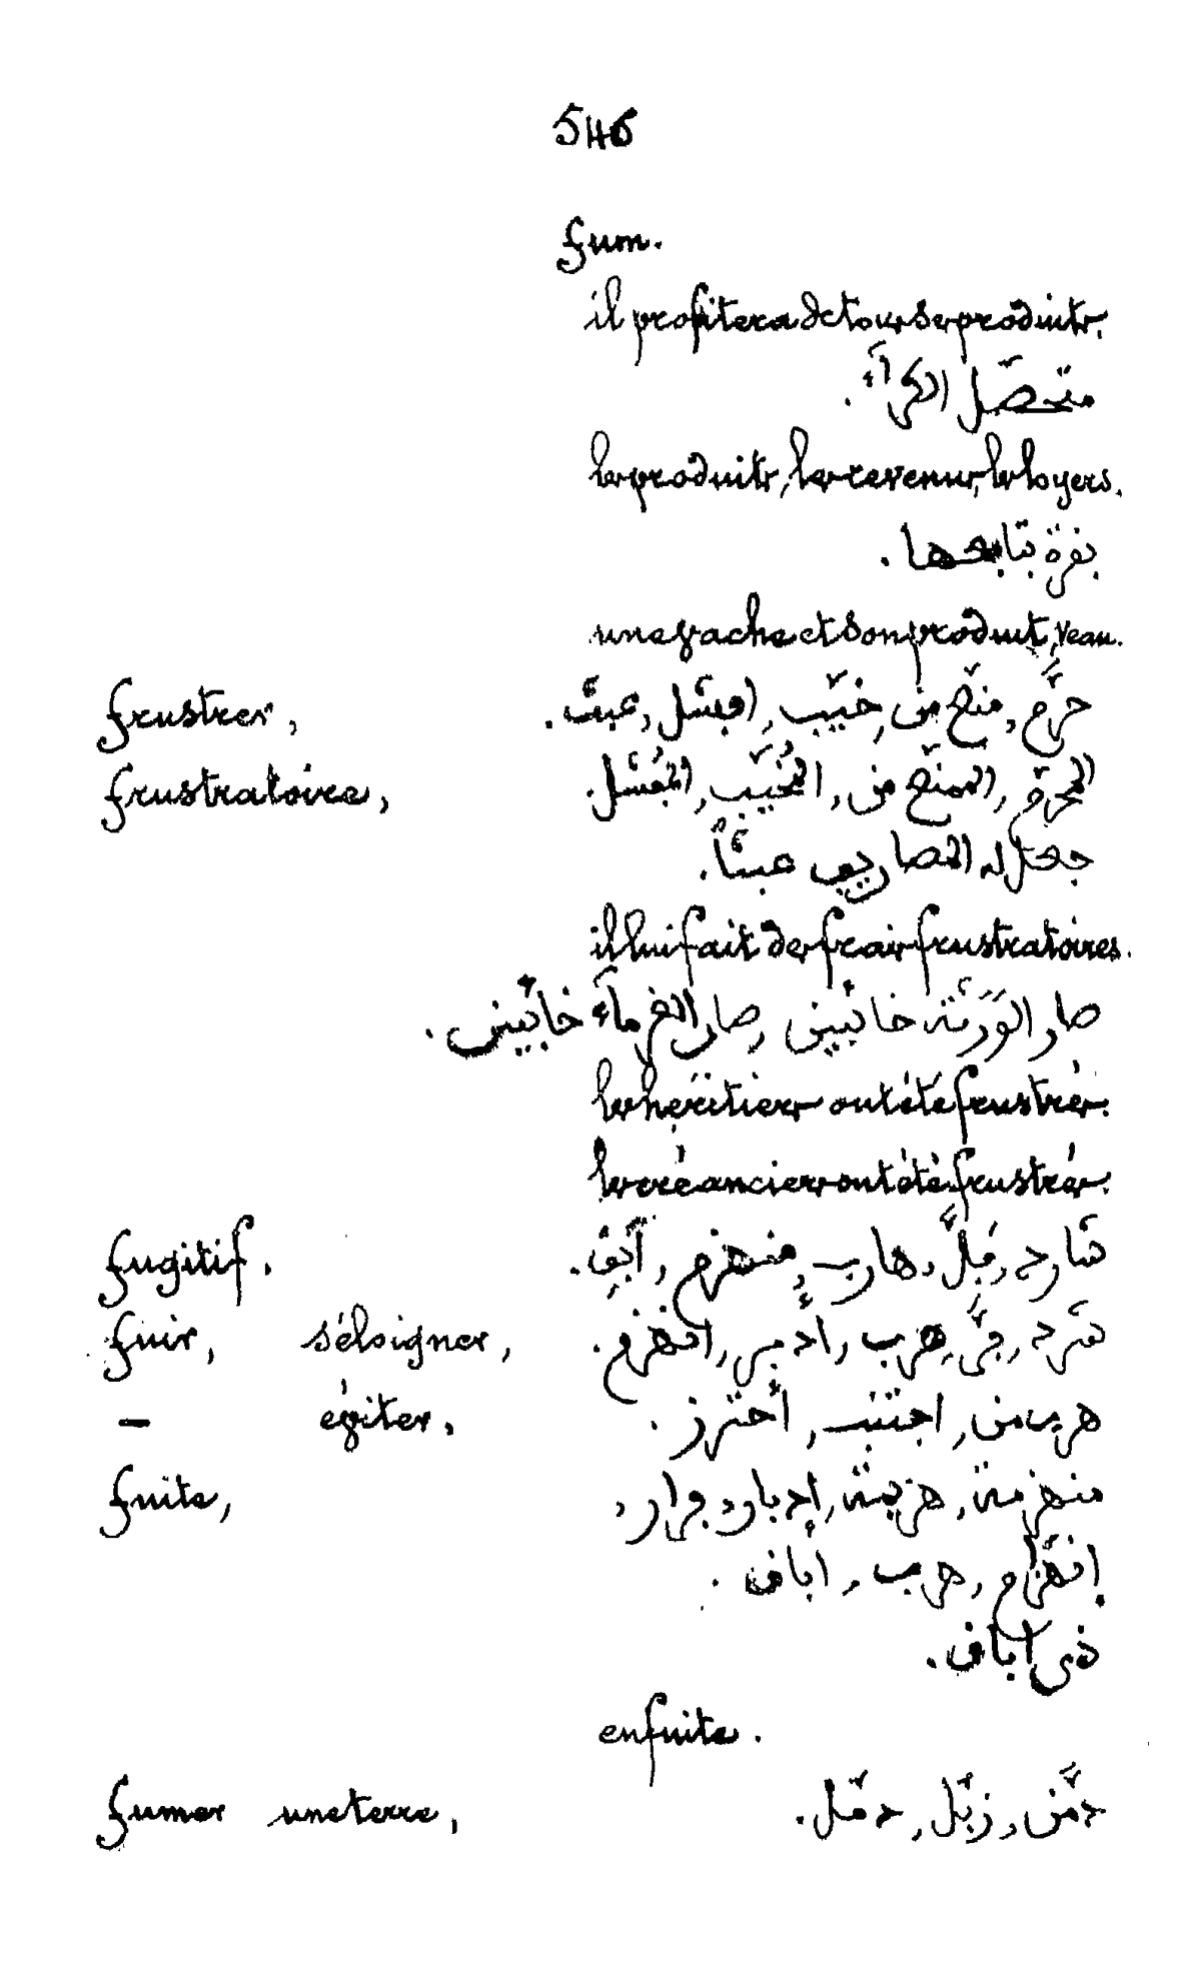 546
fum.
il profitera de tous ses produits.
متحصّل الكرآء.
les produits, les revenus, les loyers.
بقرة بتابعها.
une vache et son produit, veau.
frustrer, حرَّم, منع من, خيّب, افشل, عبث.
frustratoire, المحرّم, الممنّع من, المُخيّب, المُفشل.
جعل له المصاريف عبثاً.
il lui fait des frais frustratoires.
صار الوَرَثة خائبين, صار الغرمآء خائبين.
les héritiers ont été frustrés.
les créanciers ont été frustrés.
fugitif. شارد, فَلٌّ, هارب, منهزم, آبِق.
fuir, s'éloigner, شرد, فرَّ, هرب, أدبر, انهزم.
— éviter, هرب من, اجتنب, أحترز.
fuite, منهزمة, هزيمة, إدبار, فرار,
إنهزام, هرب, اباق.
في اباق.
en fuite.
fumer une terre, دمَّن, زبّل, دمّل.